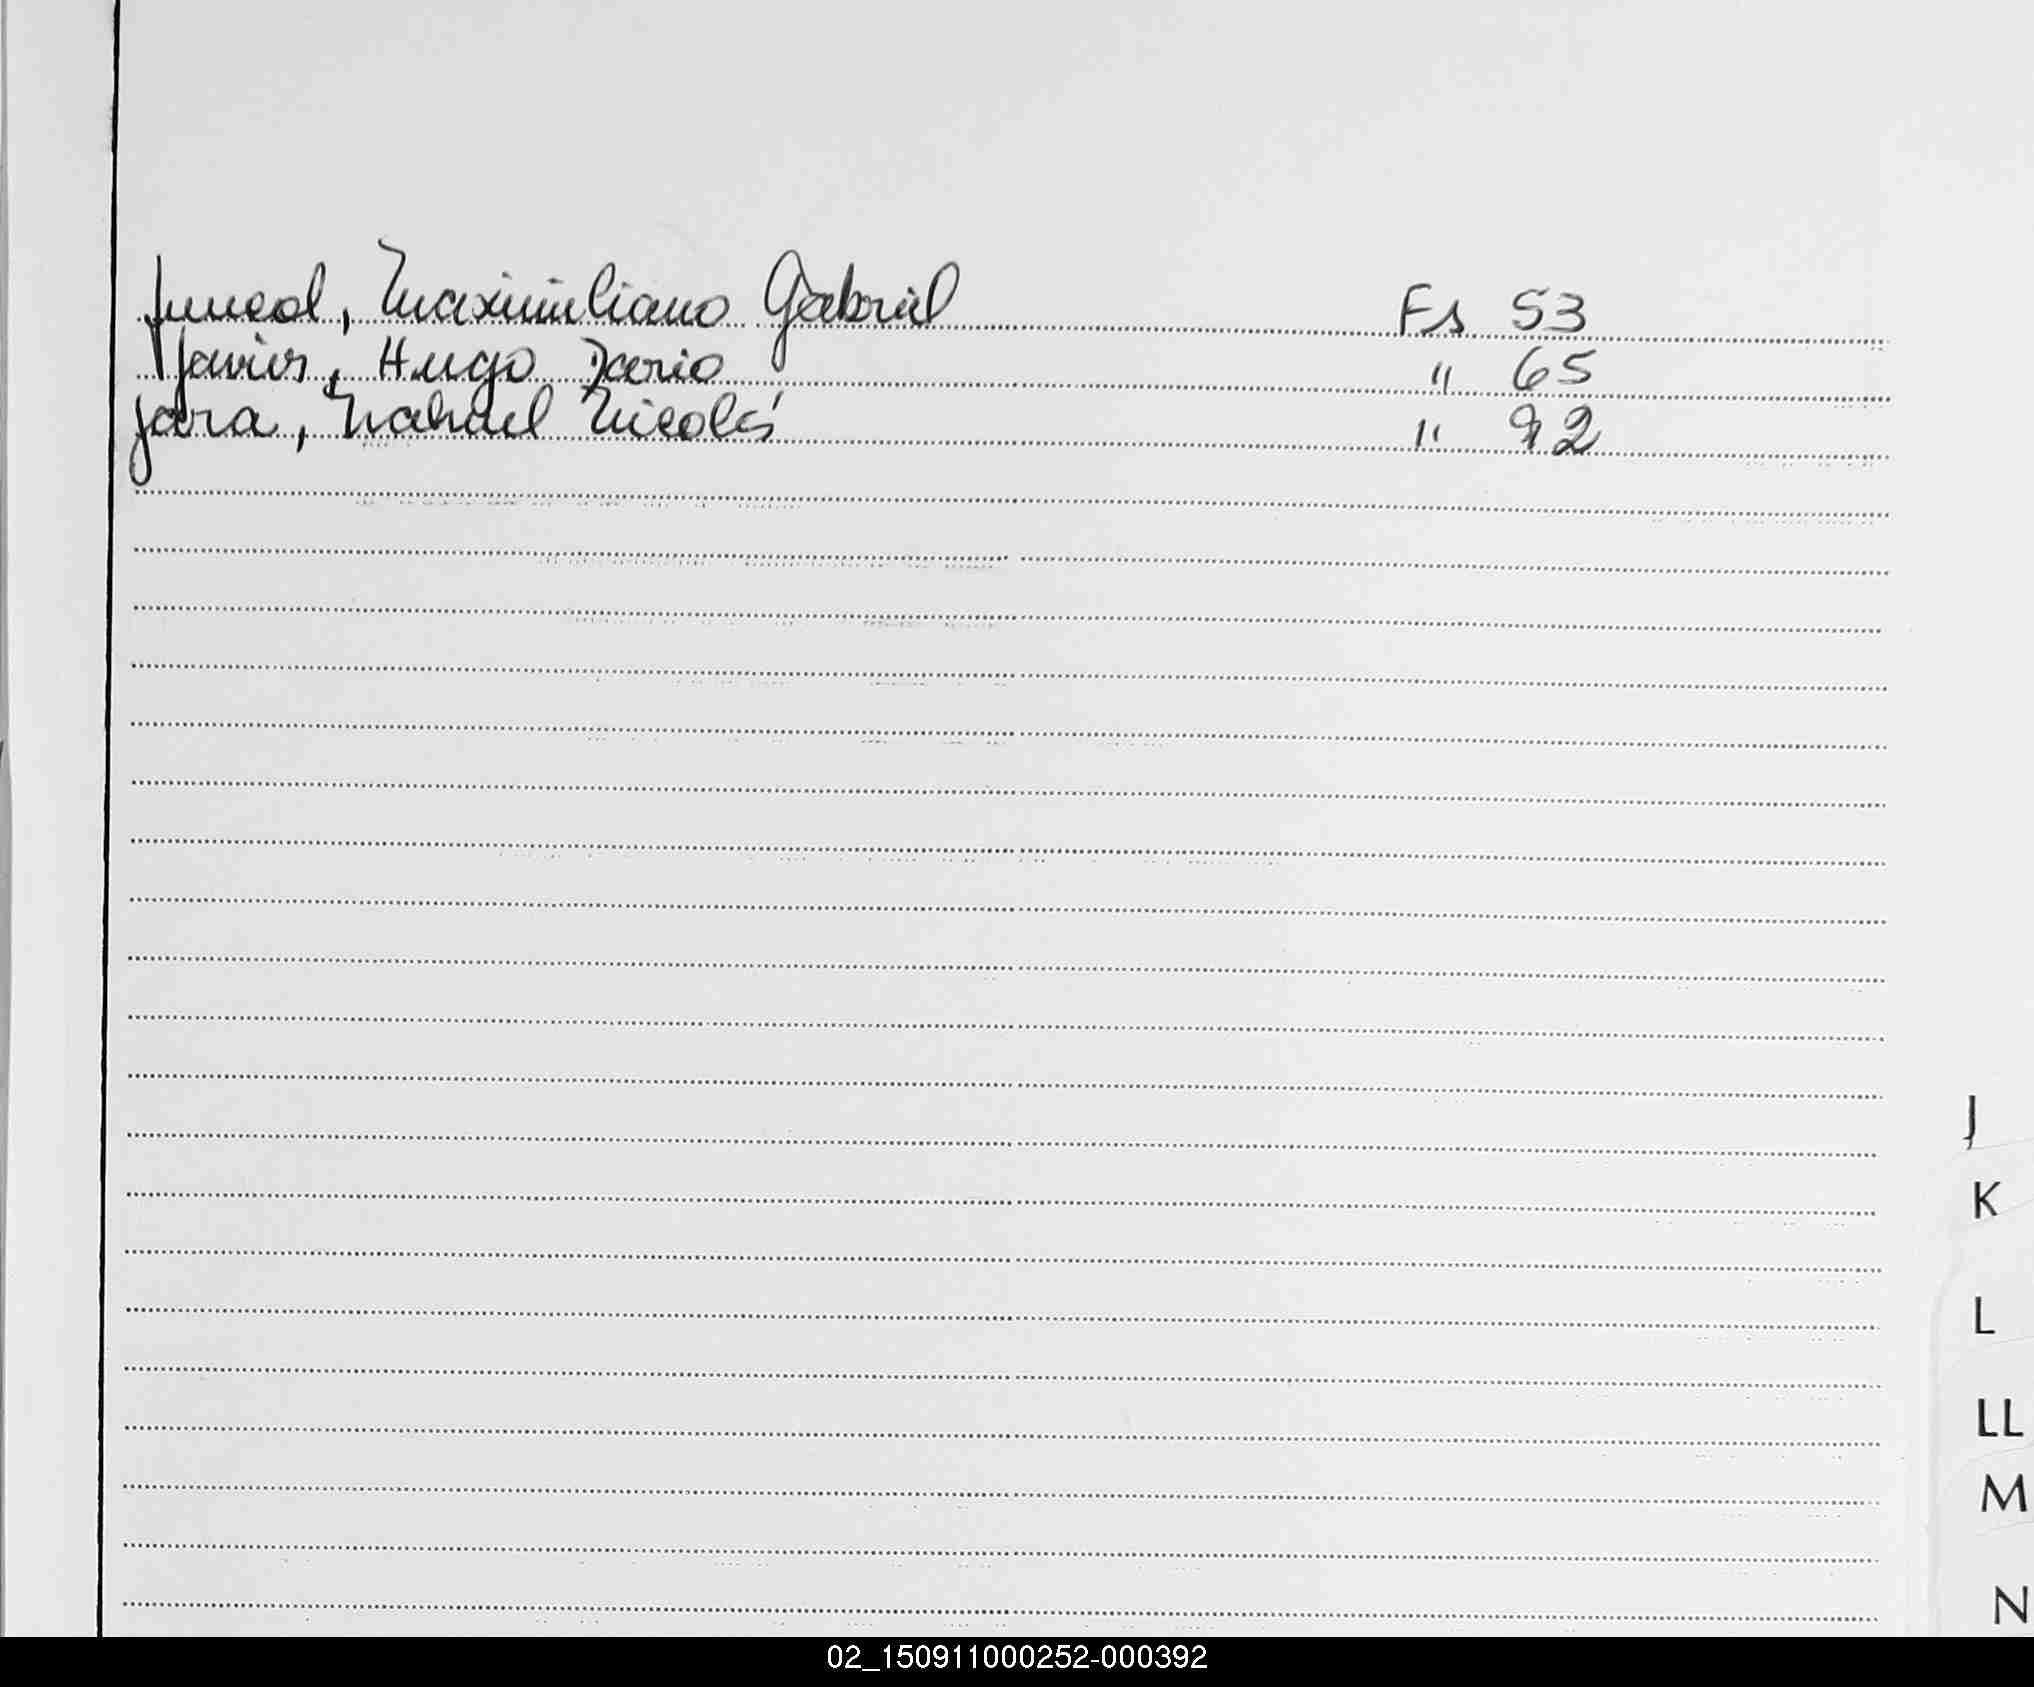 Juncal, Maximiliano Gabriel Fs 53
Javier, Hugo Dario " 65
Jara, Nahuel Nicolás " 92
J
K
L
LL
M
N
02_150911000252-000392